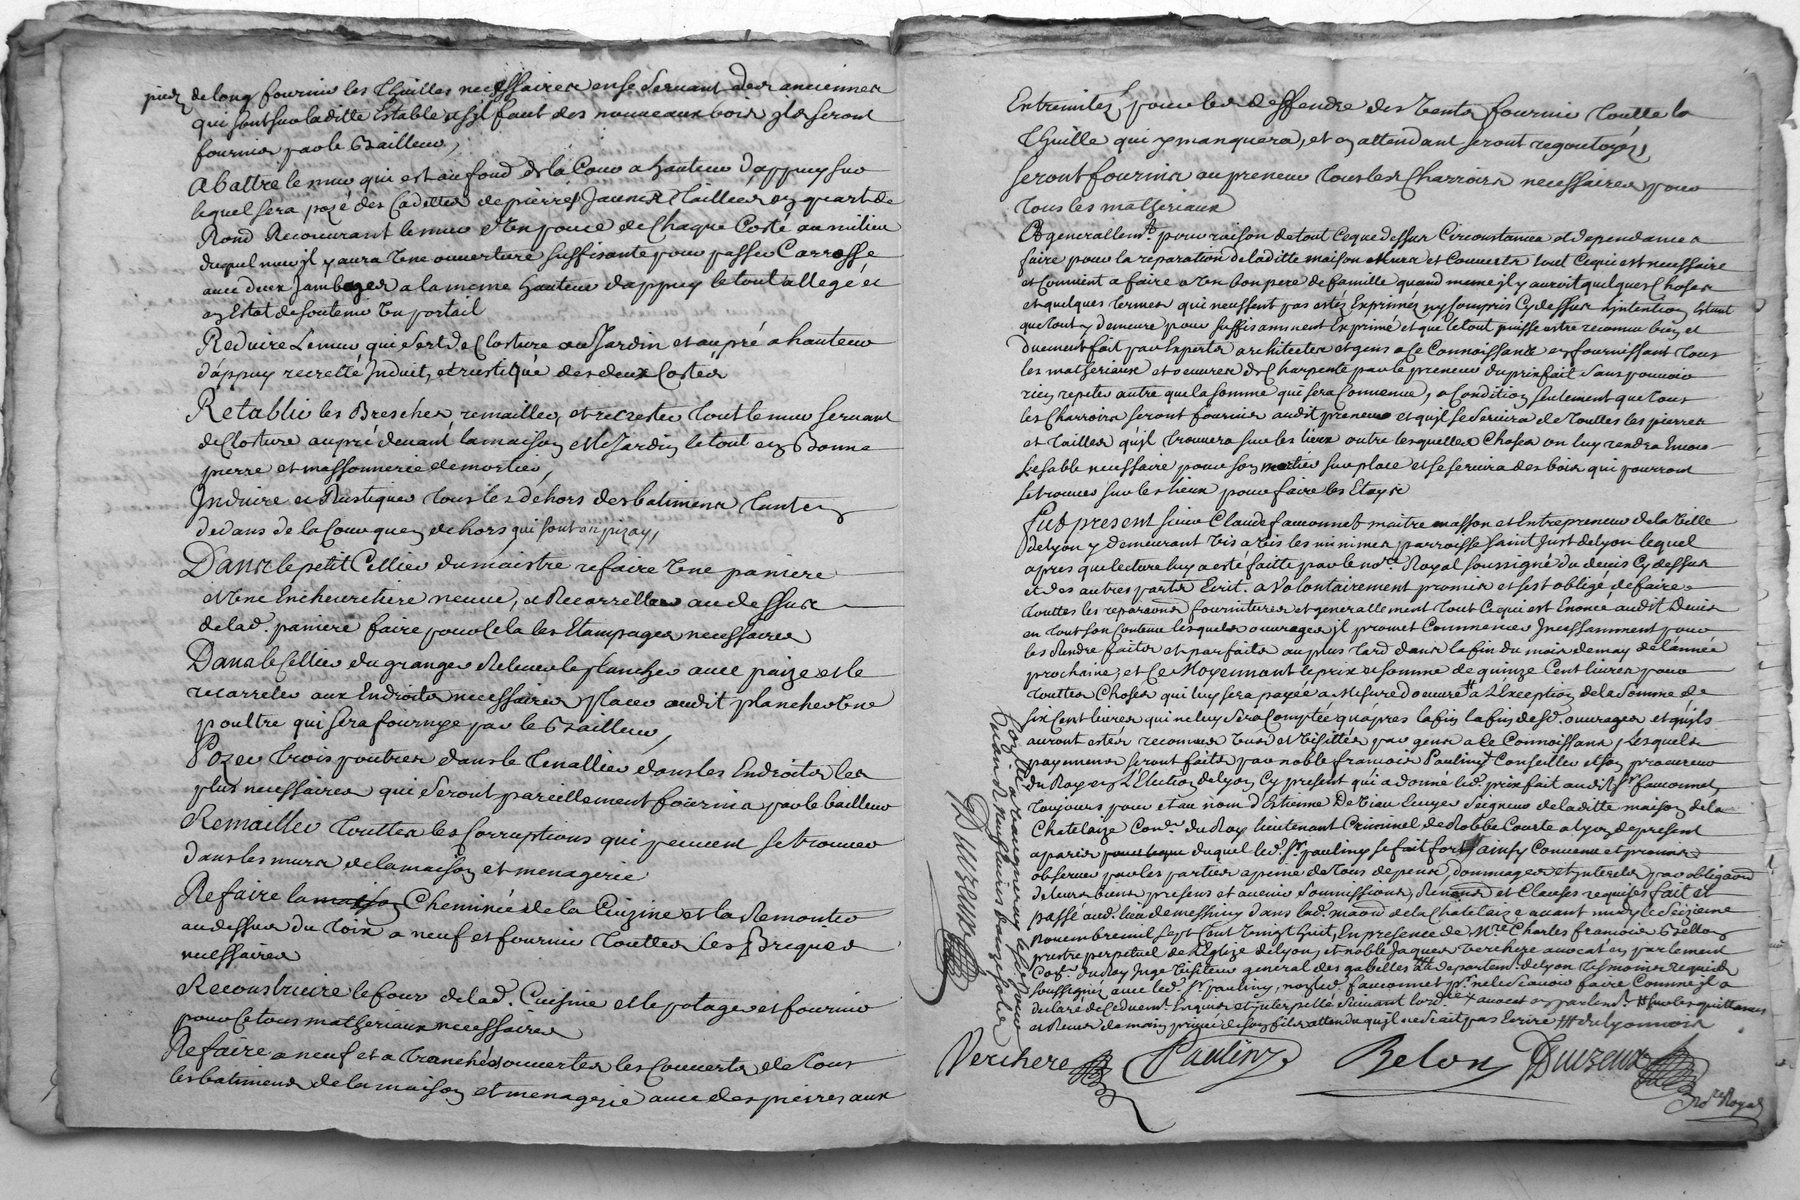 pieds de long fournir les Thuilles necessaires en se servant des anciennes
qui sont sur laditte Estable et sil faut des nouveaux bois jls seront
fournis par le Bailleur,
Abattre le mur qui est au fond de la Cour a hauteur d'appuy sur
lequel sera pozé des Cadettes de pierres Jaunes Taillées en quart de
Rond Recouvrant le mur d'un pouce de Chaque Costé au milieu
duquel mur jl y aura Une ouverture suffisante pour passer Carrosse
avec deux Jambages a la meme hauteur dappuy le tout allegé et
en Estat de soutenir Un portail
Reduire Le mur qui sert de Closture au Jardin et au pré a hauteur
d'appuy recretté Induit, et rustiqué des deux Costés
Retablir les Bresches remailler, et recretter Tout le mur servant
de Closture au pré devant la maison et le Jardin le tout en Bonne
pierre et massonnerie de mortier,
Induire et Rustiquer Tous les dehors des batimens Tant en
dedans de la Cour quen dehors qui sont en pizay,
Dans le petit Cellier du maistre refaire Une paniere
et Une Encheuetriere neuve, et Recarreller au dessus
de lad. paniere faire pour Cela les Etampages necessaires
Dans le Cellier du granger Relever le plancher avec paize et le
recarreler aux Endroits necessaires Placer audit plancher Une
poultre qui sera fournye par le Bailleur,
Pozer Trois poutres dans le Tenallier dans les Endroits les
plus necessaires qui seront pareillement fournis par le bailleur
Remailler Touttes les Corruptions qui peuvent se trouver
dans les murs de la maison et menagerie
Refaire la maison Cheminée de la Cuizine et la Remonter
au dessus du Toix a neuf et fournir Touttes les Briques
necessaires
Reconstruire le four de lad. Cuisine et le potager et fournir
pour Ce tous mathériaux necessaires
Refaire a neuf et a Tranché ouvertes les Couverts de Tous
les batimens de la maison et menagerie avec des pierres aux
Extremités pour les deffendre des Vents fournir Toutte la
Thuille qui y manquera, et en attendant seront regoutoyés,
seront fournis au preneur Tous les Charrois necessaires pour
Tous les matheriaux
Et generallemt. pour raison de tout Ceque dessus Circonstances et dependances
faire pour la réparation de laditte maison Murs et Couverts tout Cequi est necessaire
et Convient a faire a Un bon pere de famille quand meme il y auroit quelques Choses
et quelques Termes qui neussent pas estez Exprimez ny Compris Cy dessus Lintention Estant
que tout y demeure pour suffisamment Exprimé et que le tout puisse estre reconnu bien et
duement fait par Experts architectes et gens a Ce Connoissans en fournissant Tous
les matheriaux et oeuvres de Charpente par le preneur du prixfait sans pouvoir
rien repeter autre que la somme qui sera Convenue, a Condition seulement que Tous
les Charrois seront fournis audit preneur et quil se servira de Touttes les pierres
et Tailles quil trouvera sur les lieux outre lesquelles Choses on luy rendra Encore
le sable necessaire pour son mortier sur place et se servira des bois qui pourront
se trouver sur les lieux pour faire les Etays
Fut present sieur Claude fauconnet maitre masson et Entrepreneur de la Ville
de Lyon y demeurant Vis a Vis les minimes parroisse saint Just de Lyon lequel
apres que lecture luy a esté faitte par le nore. Royal soussigné du devis Cy dessus
et des autres parts Ecrit. a Volontairement promis et s'est obligé de faire
Touttes les reparaons fournitures et generallement Tout Cequi est Enoncé audit Devis
en Tout son Contenu lesquels ouvrages il promet Commencer Incessamment pour
les Rendre faits et parfaits au plus Tard dans la fin du mois de may de l'année
prochaine, et Ce Moyennant le prix et somme de quinze Cent livres pour
Touttes Choses qui luy sera payée a Mesure d'oeuvre # a L'Exception de la somme de
six Cent livres qui ne luy sera Comptée qu'apres la fin la fin desd. ouvrages et qu'ils
auront estés reconnus Vus et Visittés par gens a Ce Connoissans, Lesquels
payemens seront faits par noble francois Pauliny + Conseiller et son procureur
du Roy en L'Election de Lyon Cy present qui a donné led. prixfait audit Sr. fauconnet
Toujours pour et au nom d'Etienne De Viau Ecuyer Seigneur de laditte maison de la
Chatelaize Coner. du Roy lieutenant Criminel de Robbe Courte a Lyon de present
a paris duquel led. Sr. pauliny se fait fort, ainsy Convenu et promis
observer par les parties a peine de tous depens, dommages et jnterets, par obligaons
de leurs biens presens et avenir soumissions, Renons et Clauses requises fait et
passé aud. lieu de messimy dans lad. maison de la Chatelaize avant midy le seizieme
novembre mil sept Cent Vingt huit, En presence de Mre. Charles francois Bellon
prestre perpetuel de l'Eglize de Lyon, et noble Jaques Verchere avocat en parlement
Coner. du Roy Juge Visiteur general des gabelles au departemt. de Lyon Tesmoins requis
soussignés avec led. Sr. pauliny, non led. fauconnet pr. ne le scavoir faire Comme jl a
declaré de Ce duement Enquis et jnterpellé suivant lordce. + avocat en parlemt. # sur les quittances
et Receus de main privée de son fils attendu qu'jl ne scait pas Ecrire ### du lyonnois
Verchere Pauliny Belon Duizeux
Nore. Royal